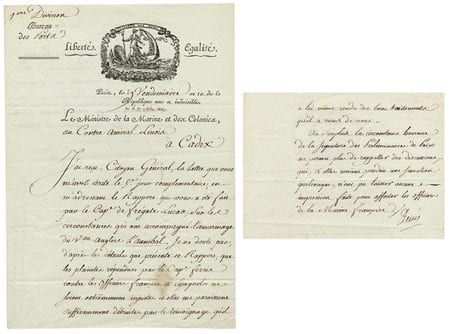 1ère Division
Bureau
des Ports
Liberté. Egalité.
Paris, les Vendémiaire an 10. de la
République une et indivisible.
Le Ministre de la Marine et des Colonies,
au Contre Amiral Linois
à Cadix
J'ai reçu, Citoyen Général, la lettre que vous
m'avez écrite le 5e jour complémentaire, en
m'adressant le Rapport qui vous a été fait
par le Capne de frégate Lucas, sur les
circonstances qui ont accompagné l'amarinage
du Vau Anglais l'Annibal. Je ne doute pas
d'après les détails que présente ce Rapport, que
les plaintes répandues par le Capne ferris
contre les officiers français et Espagnols ne
soient extrêmement injustes et elles me paraissent
suffisamment détruites par le témoignage qu'il
a lui même rendu des bons traitements
qu'il a reçus de vous.
Au surplus la circonstance heureuse
de la signature des Préliminaires de paix
ne permet plus de rappeller des discussions
qui, si elles avaient produit une sensation
quelconque, n'ont pu laisser aucune
impression faite pour affecter les officiers
de la Marine française.